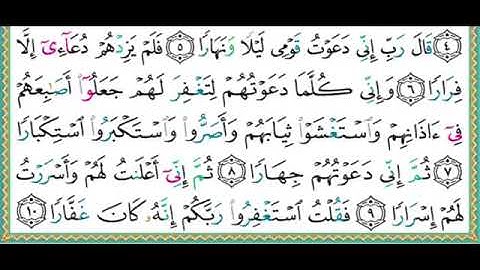 ٤ قَالَ رَبِّ إِنِّي دَعَوْتُ قَوْمِي لَيْلًا وَنَهَارًا ٥ فَلَمْ يَزِدْهُمْ دُعَآءِىٓ إِلَّا
فِرَارًا ٦ وَإِنِّي كُلَّمَا دَعَوْتُهُمْ لِتَغْفِرَ لَهُمْ جَعَلُوٓا۟ أَصَٰبِعَهُمْ
فِىٓ ءَاذَانِهِمْ وَٱسْتَغْشَوْا۟ ثِيَابَهُمْ وَأَصَرُّوا۟ وَٱسْتَكْبَرُوا۟ ٱسْتِكْبَارًا
٧ ثُمَّ إِنِّي دَعَوْتُهُمْ جِهَارًا ٨ ثُمَّ إِنِّىٓ أَعْلَنتُ لَهُمْ وَأَسْرَرْتُ
لَهُمْ إِسْرَارًا ٩ فَقُلْتُ ٱسْتَغْفِرُوا۟ رَبَّكُمْ إِنَّهُۥ كَانَ غَفَّارًا ١٠